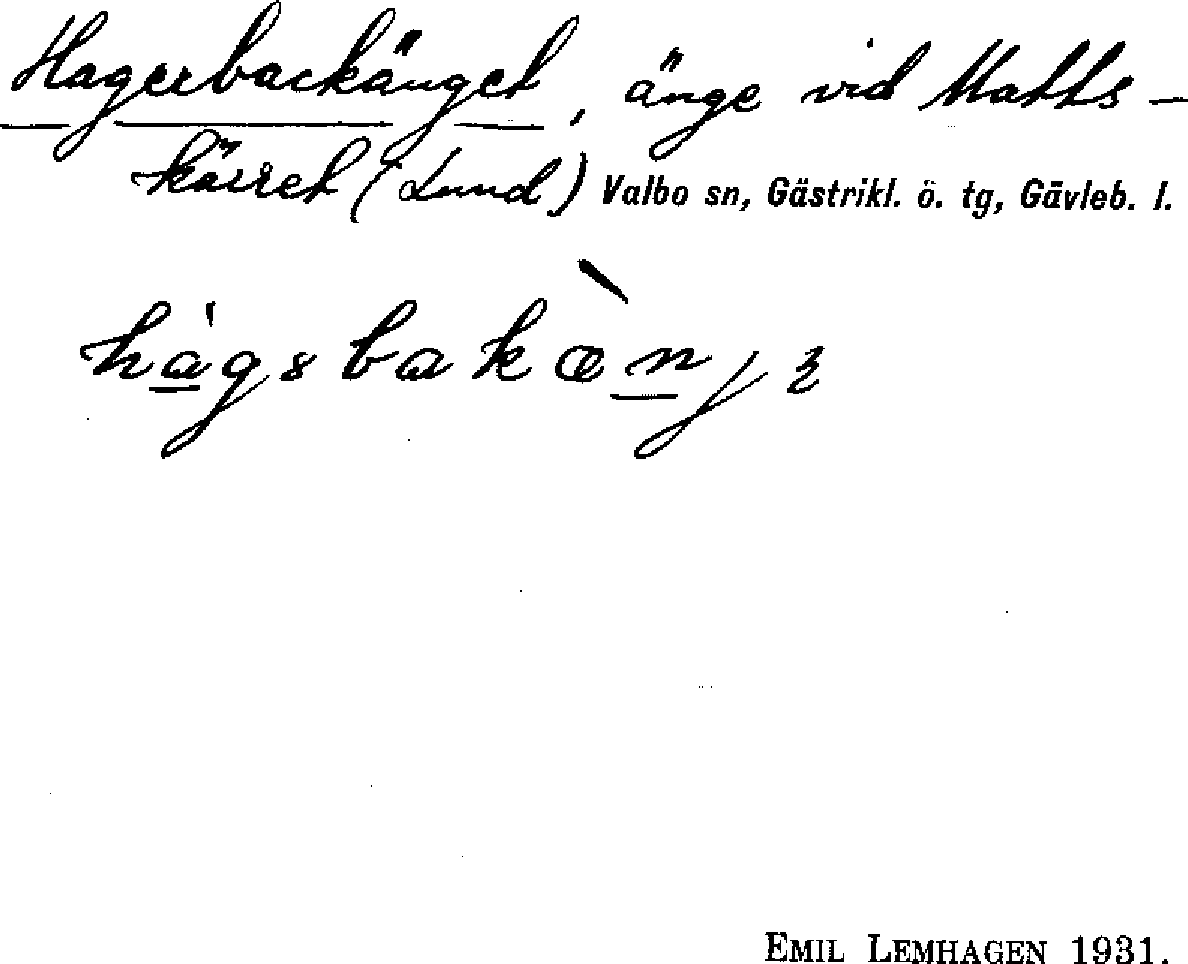 Hagerbackänget, änge vid Matts-
kärret (Lund) Valbo sn, Gästrikl. ö. tg, Gävleb. l.
hàgsbakæ̀njɜ
EMIL LEMHAGEN 1931.